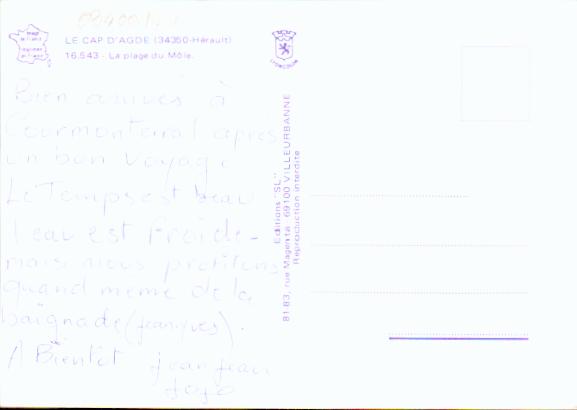 LE CAP D'AGDE (34350-Hérault)
16.543 - La plage du Môle.
Bien arrivés à
Cournonterral après
un bon voyage
Le Temps est beau
l'eau est froide -
mais nous profitons
quand meme de la
baignade (jean yves).
A Bientôt jean jean
Editions "SL"
81-83, rue Magenta 69100 VILLEURBANNE
Reproduction interdite